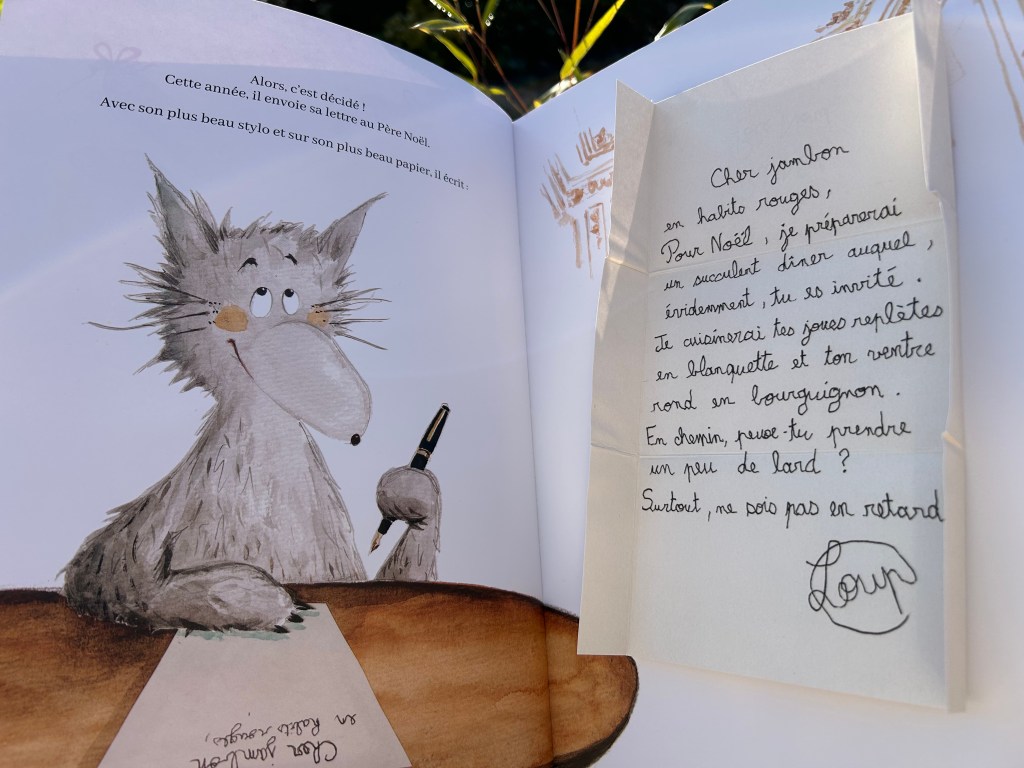 Alors, c'est décidé !
Cette année, il envoie sa lettre au Père Noël.
Avec son plus beau stylo et sur son plus beau papier, il écrit :
Cher jambon
en habits rouges,
Cher jambon
en habits rouges,
Pour Noël, je préparerai
un succulent dîner auquel,
évidemment, tu es invité.
Je cuisinerai tes joues replètes
en blanquette et ton ventre
rond en bourguignon.
En chemin, peux-tu prendre
un peu de lard ?
Surtout, ne sois pas en retard
Loup